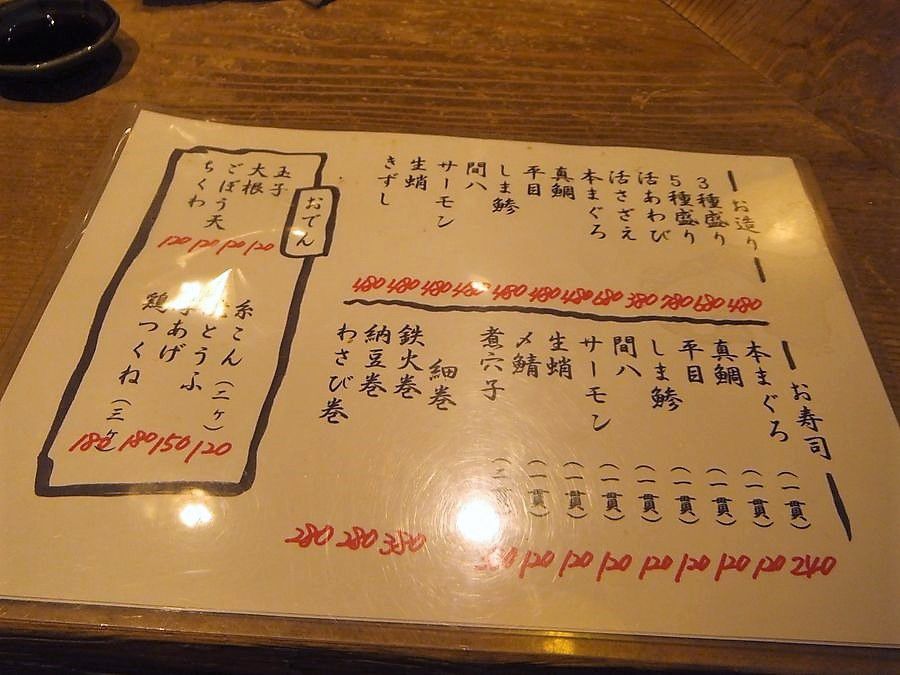 お造り
3種盛り 480
5種盛り 680
活あわび 780
活さざえ 380
本まぐろ 680
真鯛 480
平目 480
しま鯵 480
間八 480
サーモン 480
生蛸 480
きずし 480
お寿司
本まぐろ (一貫) 240
真鯛 (一貫) 120
平目 (一貫) 120
しま鯵 (一貫) 120
間八 (一貫) 120
サーモン (一貫) 120
生蛸 (一貫) 120
〆鯖 (一貫) 120
煮穴子
細巻
鉄火巻
納豆巻 280
わさび巻 280
おでん
玉子 120
大根 120
ごぼう天 120
ちくわ 120
糸こん (二ケ) 120
とうふ 150
あげ 180
鶏つくね (三ケ) 180